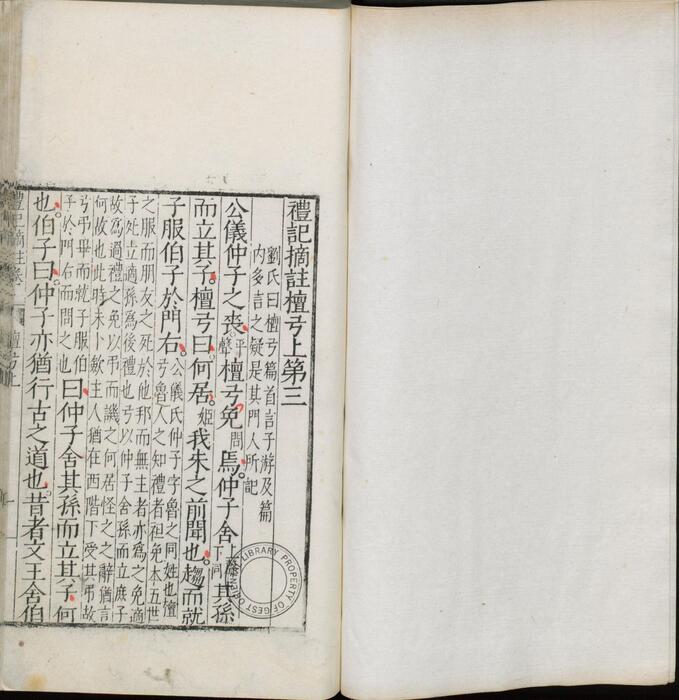 禮記摘註檀弓上第三
劉氏曰檀弓篇首言子游及篇
內多言之疑是其門人所記
公儀仲子之喪平聲檀弓免問焉仲子舍上聲下同其孫
而立其子檀弓曰何居姬我未之前聞也趨而就
子服伯子於門右公儀氏仲子字魯之同姓也檀
弓魯人之知禮者袒免本五世
之服而朋友之死於他邦而無主者亦為之免適
子死立適孫為後禮也弓以仲子舍孫而立庶子
故為過禮之免以弔而譏之何居怪之之辭猶言
何故也此時未卜歛主人猶在西階下受其弔故
弓弔畢而就子服伯
子於門右而問之也曰仲子舍其孫而立其子何
也伯子曰仲子亦猶行古之道也昔者文王舍伯
禮記摘註卷
檀弓上
LIBRARY PROPERTY OF GEST